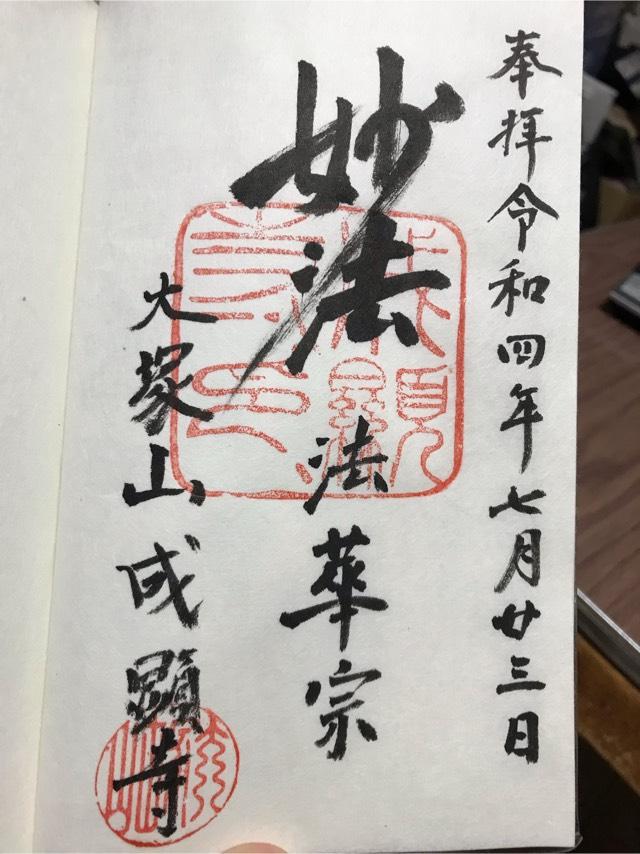 奉拝令和四年七月廿三日
妙法
法華宗
大塚山成顕寺